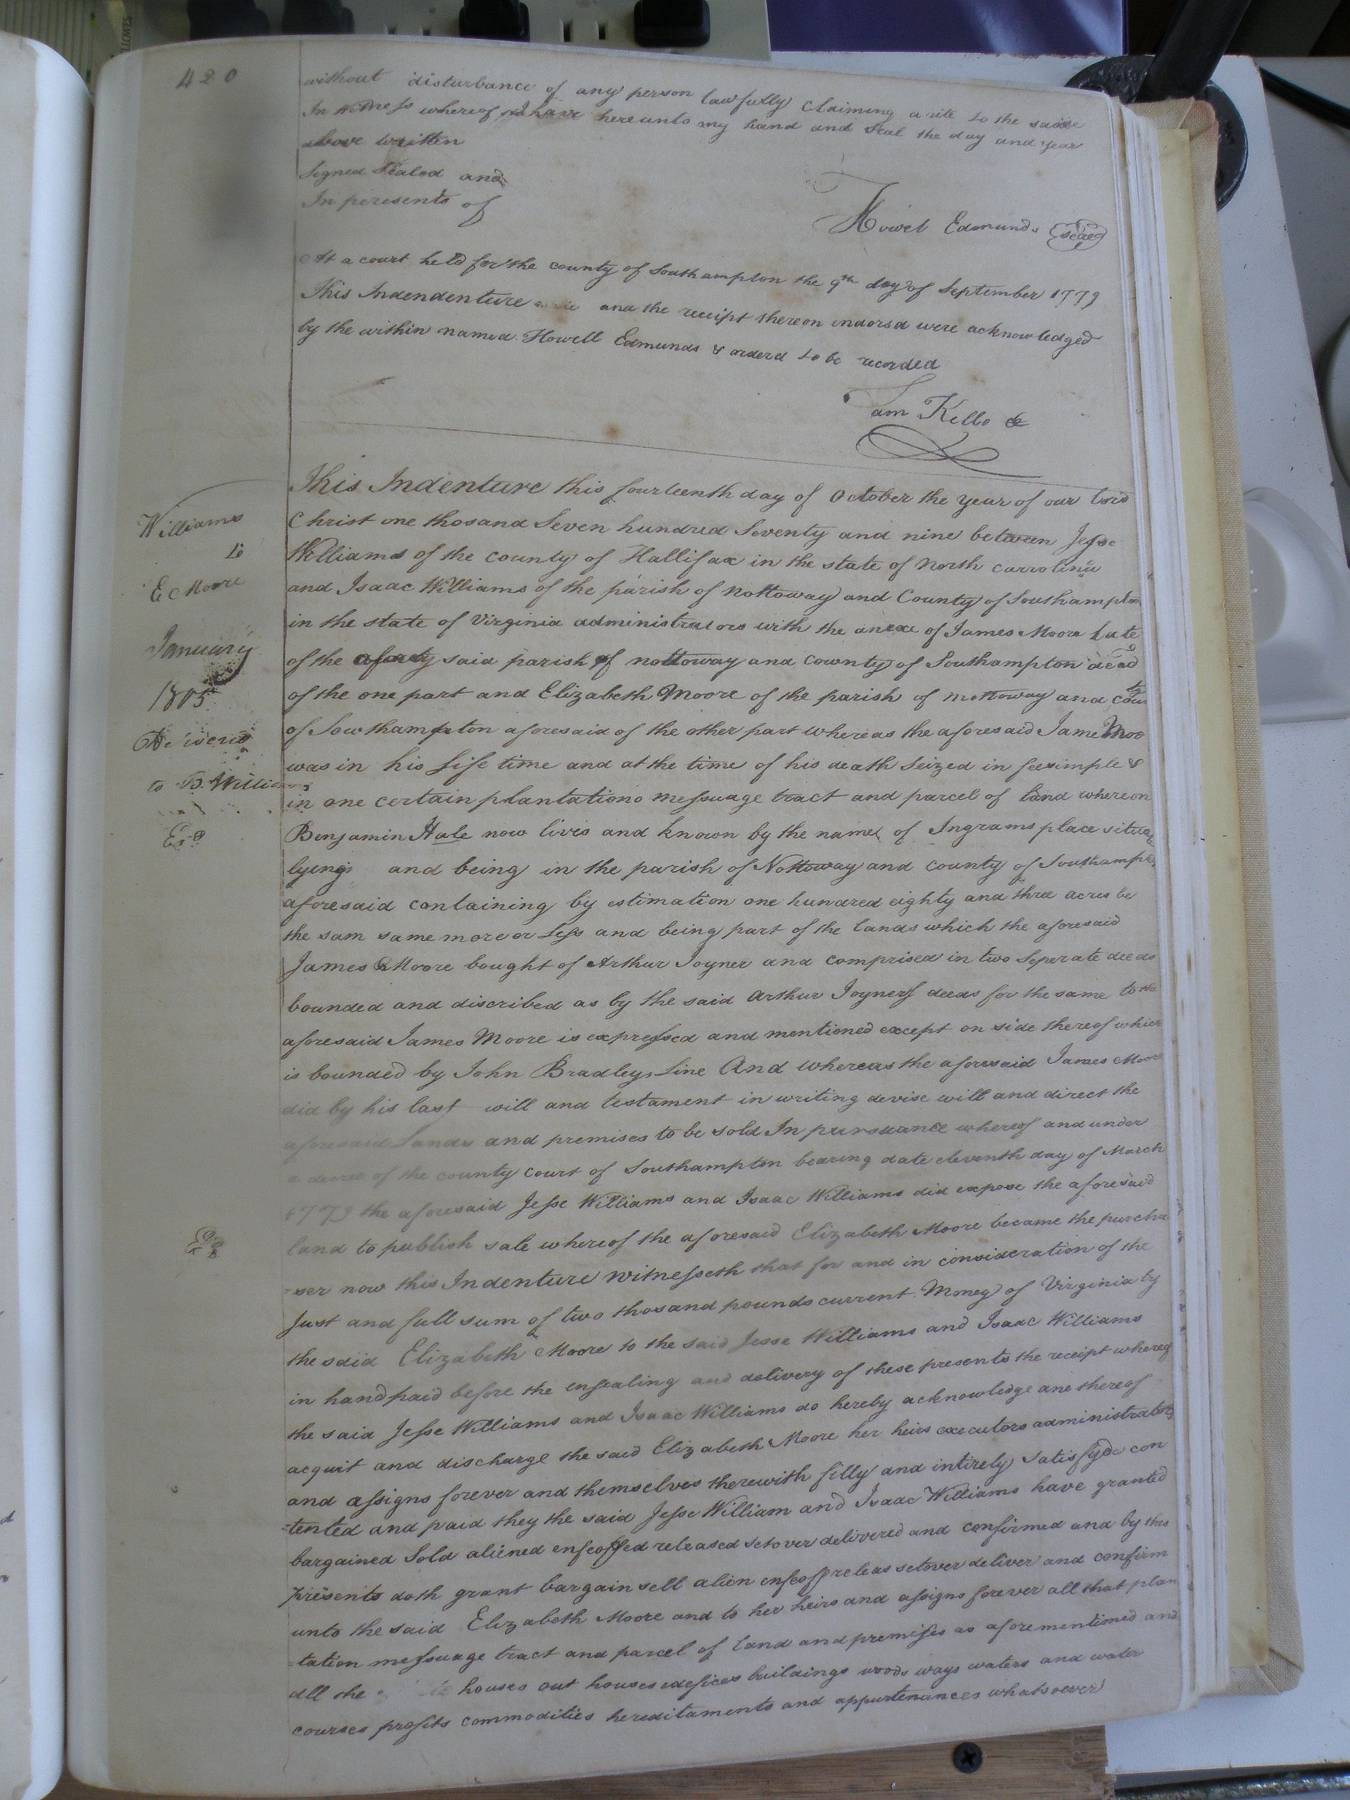 420
without disturbance of any person lawfully Claiming a tite to the saide
In witness whereof I have hereunto my hand and seal the day and year
above written
Signed Sealed and
In peresents of
Howel Edmunds seal
At a court held for the county of Southampton the 9th day of September 1779
This Indendenture and the receipt thereon indorsd were acknowledged
by the within named Howell Edmunds & orderd to be recorded
Sam Kello
This Indenture this fourteenth day of October the year of our Lord
Christ one thosand Seven hundred Seventy and nine between Jesse
Williams of the county of Hallifax in the state of North carrolina
and Isaac Williams of the parish of Nottoway and County of Southampton
in the state of Virginia administrators with the anexe of James Moore Late
of the said parish of nottoway and cownty of Southampton decd
of the one part and Elizabeth Moore of the parish of nottoway and couty
of Sowthampton aforesaid of the other part whereas the aforesaid Jame Moo
was in his Life time and at the time of his death Seized in feesimple &
in one certain plantationo messuage tract and parcel of land whereon
Benjamin Hale now livis and known by the name of Ingrams place situa
lying and being in the parish of Nottoway and county of Southampt
aforesaid containing by estimation one hundred eighty and thre acres be
the sam same more or Less and being part of the lands which the aforesaid
James Moore bought of Arthur Joyner and comprised in two Seperate deeds
bounded and discribed as by the said Arthur Joyners deeds for the same to the
aforesaid James Moore is expressed and mentioned except on side thereof which
is bounded by John Bradleys Line And whereas the aforesaid James Moore
did by his last will and testament in writing devise will and direct the
aforesaid Lands and premises to be sold In pursuance whereof and under
a decree of the county court of Southampton bearing date eleventh day of March
1779 the aforesaid Jesse Williams and Isaac Williams did expose the aforesaid
land to publish sale whereof the aforesaid Elizabeth Moore became the purcha
-ser now this Indenture witnesseth that for and in consideration of the
Just and full sum of two thosand pounds current Money of Virginia by
the said Elizabeth Moore to the said Jesse Williams and Isaac Williams
in hand paid before the ensealing and delivery of these presents the receipt whereof
the said Jesse Williams and Isaac Williams do hereby acknowledge ane thereof
acquit and discharge the said Elizabeth Moore her heirs executors administrators
and assigns forever and themselves therewith filly and intirely satisfyde con
-tented and paid they the said Jesse William and Isaac Williams have granted
bargained Sold aliened enfeoffed released setover delivered and confirmed and by this
presents doth grant bargain sell alien enfeoff releas setover deliver and confirm
unto the said Elizabeth Moore and to her heirs and assigns forever all that plan
-tation messuage tract and parcel of land and premises as aforementioned and
all the houses out houses edefices buildings woods ways waters and water
courses profits commodities hereditaments and appurtenances whatsoever
Williams
to
E Moore
January
1805
to B. Williams